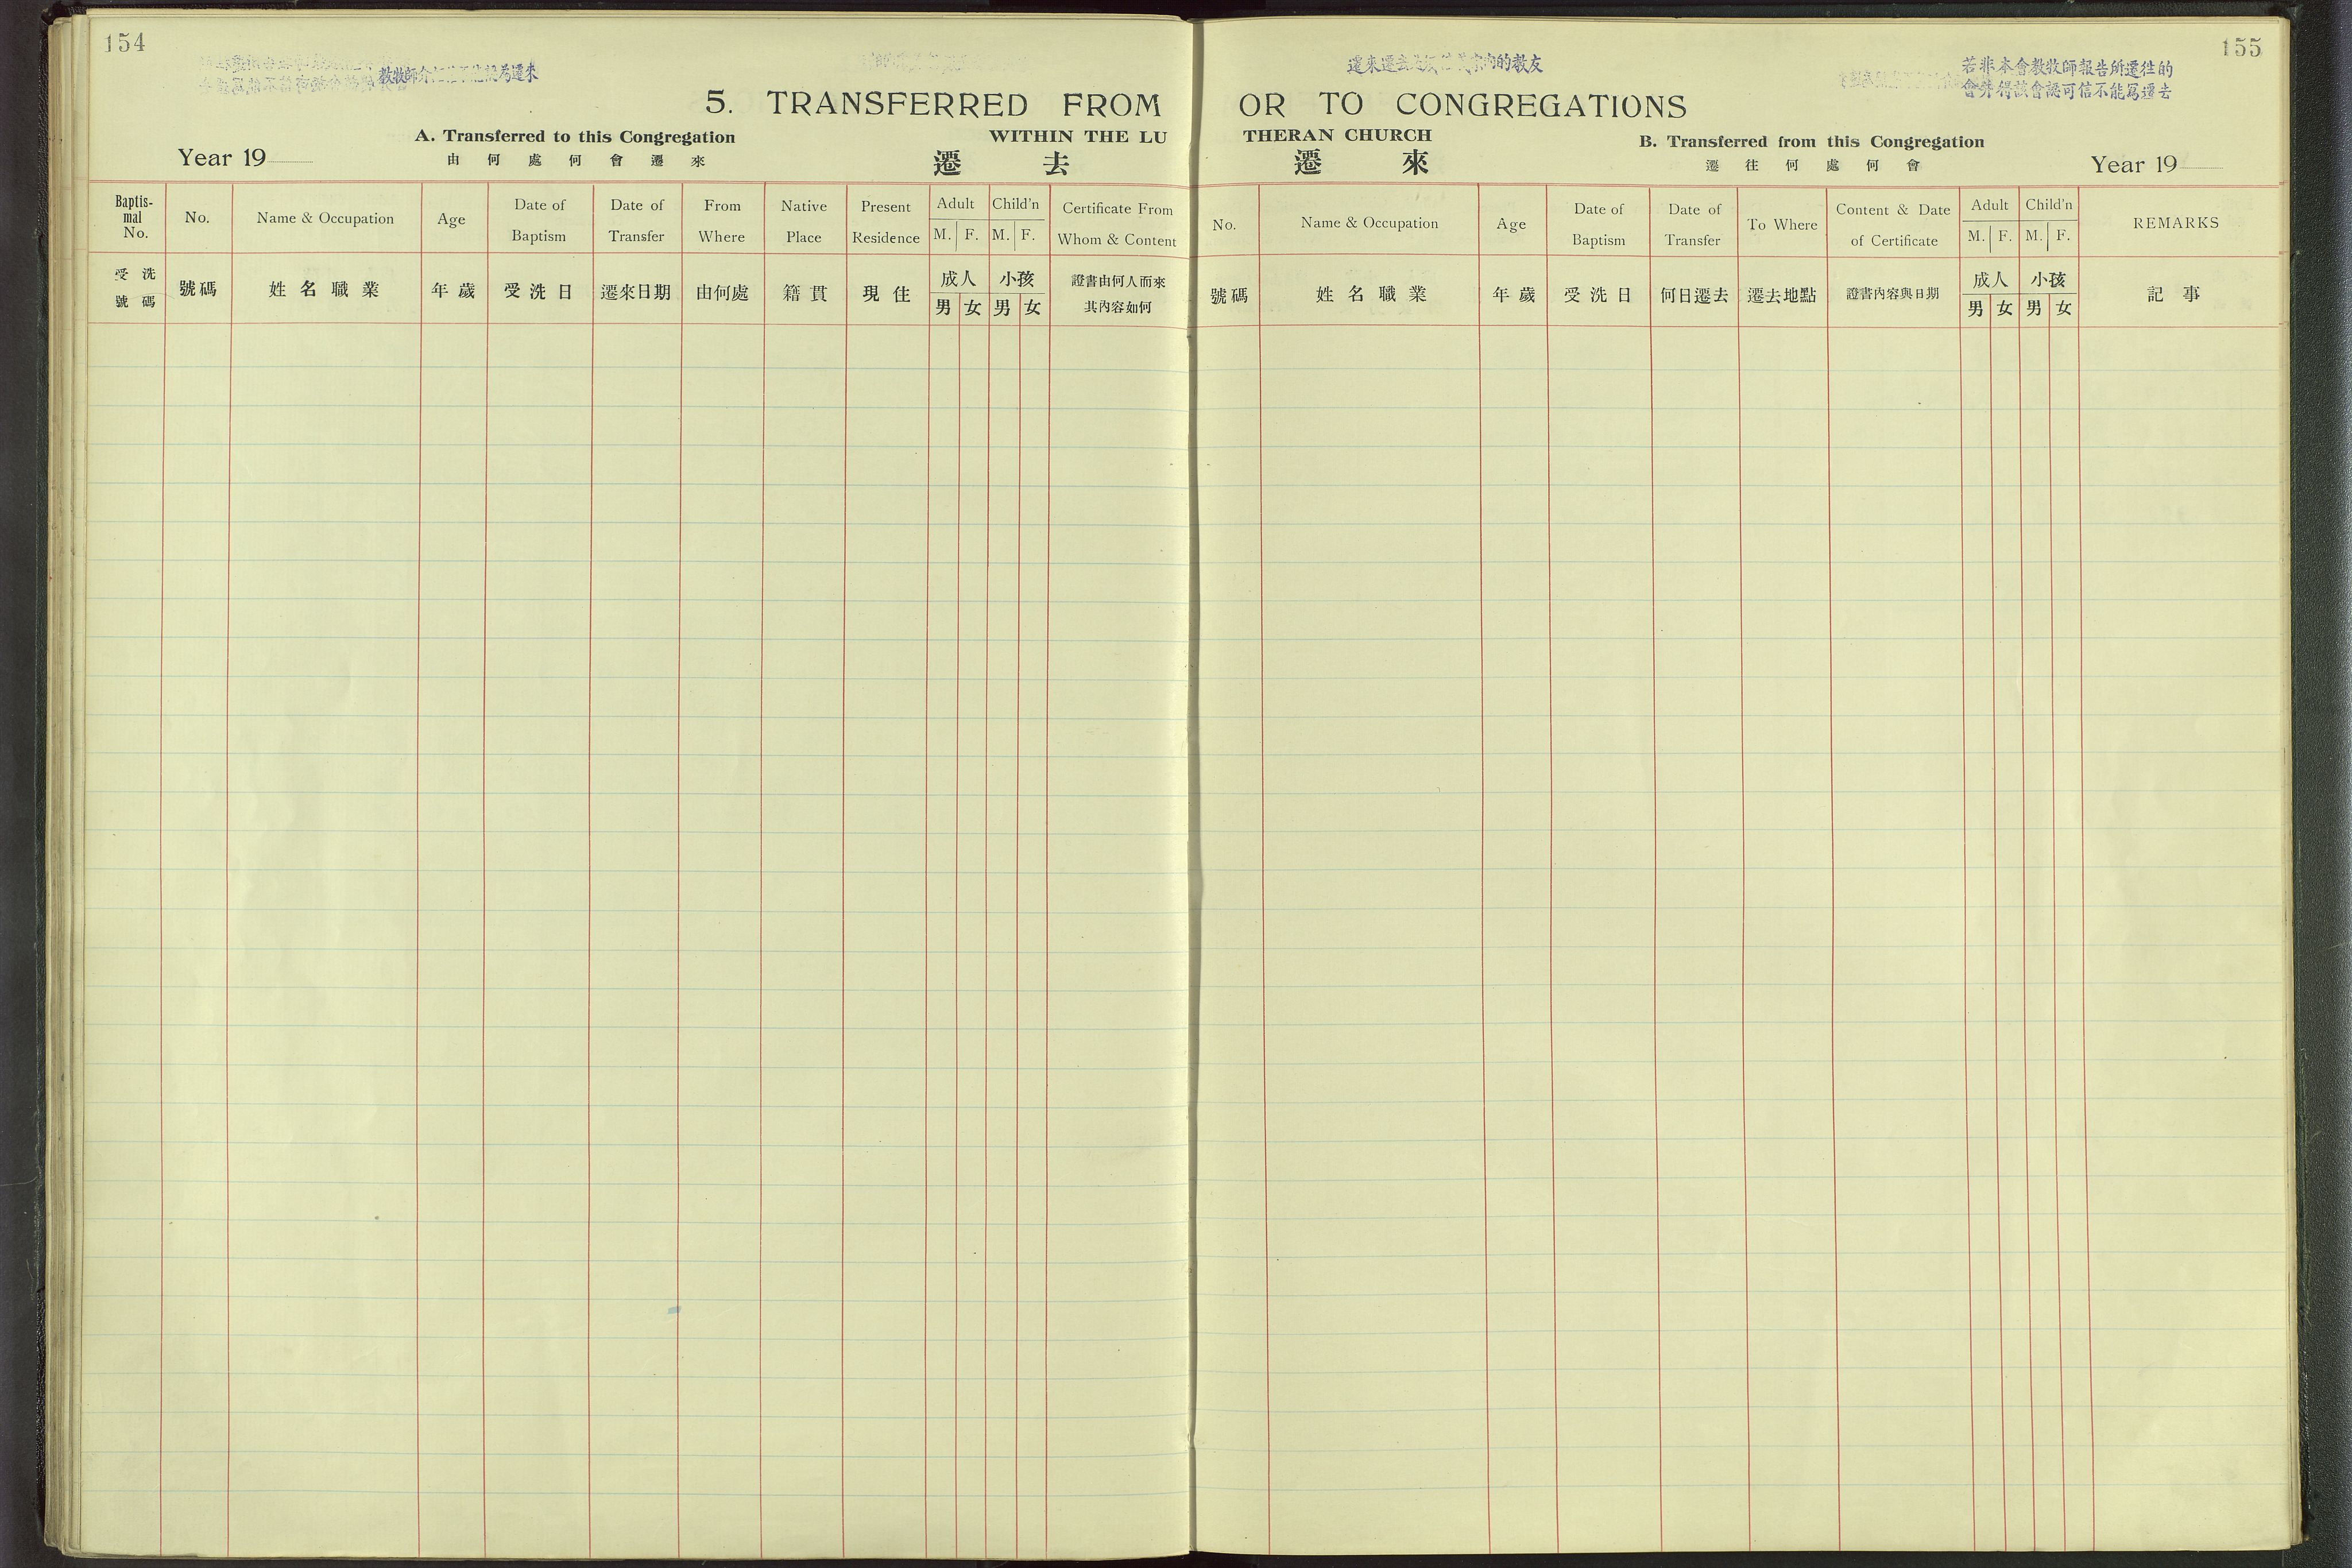 154
為遷來
5. TRANSFERRED FROM
A. Transferred to this Congregation
WITHIN THE LU
Year 19
由何處何會遷來
遷去
Baptis-mal No.
No.
Name & Occupation
Age
Date of Baptism
Date of Transfer
From Where
Native Place
Present Residence
Adult
M. F.
Child'n
M. F.
Certificate From Whom & Content
受洗號碼
號碼
姓名職業
年歲
受洗日
遷來日期
由何處
籍貫
現住
成人
男 女
小孩
男 女
證書由何人而來
其內容如何
155
的教友
若非本會教牧師報告所遷往的
會并得該會認可信不能寫遷去
OR TO CONGREGATIONS
THERAN CHURCH
B. Transferred from this Congregation
遷來
遷往何處何會
Year 19
No.
Name & Occupation
Age
Date of Baptism
Date of Transfer
To Where
Content & Date of Certificate
Adult
M. F.
Child'n
M. F.
REMARKS
號碼
姓名職業
年歲
受洗日
何日遷去
遷去地點
證書內容與日期
成人
男 女
小孩
男 女
記事